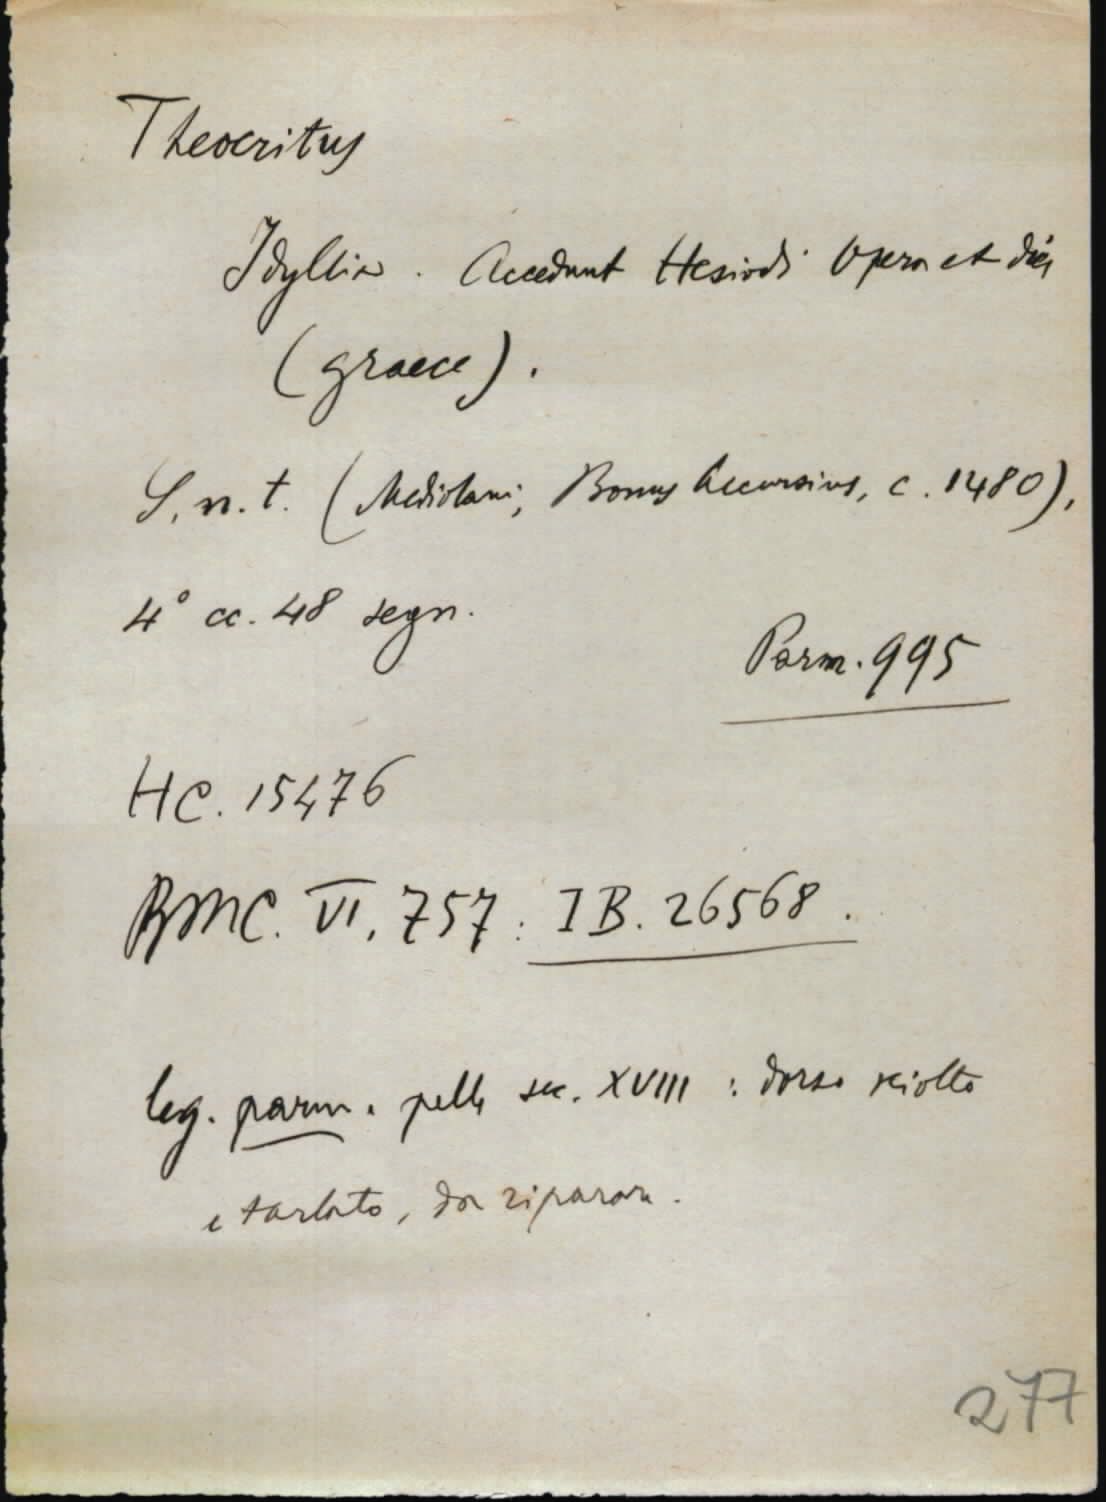 Theocritus
Idyllia. Accedunt Hesiodi Opera et dies
(graece).
S. n. t. (Mediolani, Bonus Accursius, c. 1480),
4° cc. 48 segn.
Parm. 995
HC. 15476
BMC. VI, 757: IB. 26568.
leg. parm. pelle sec. XVIII: dorso sciolto
e tarlato, da riparare.
277